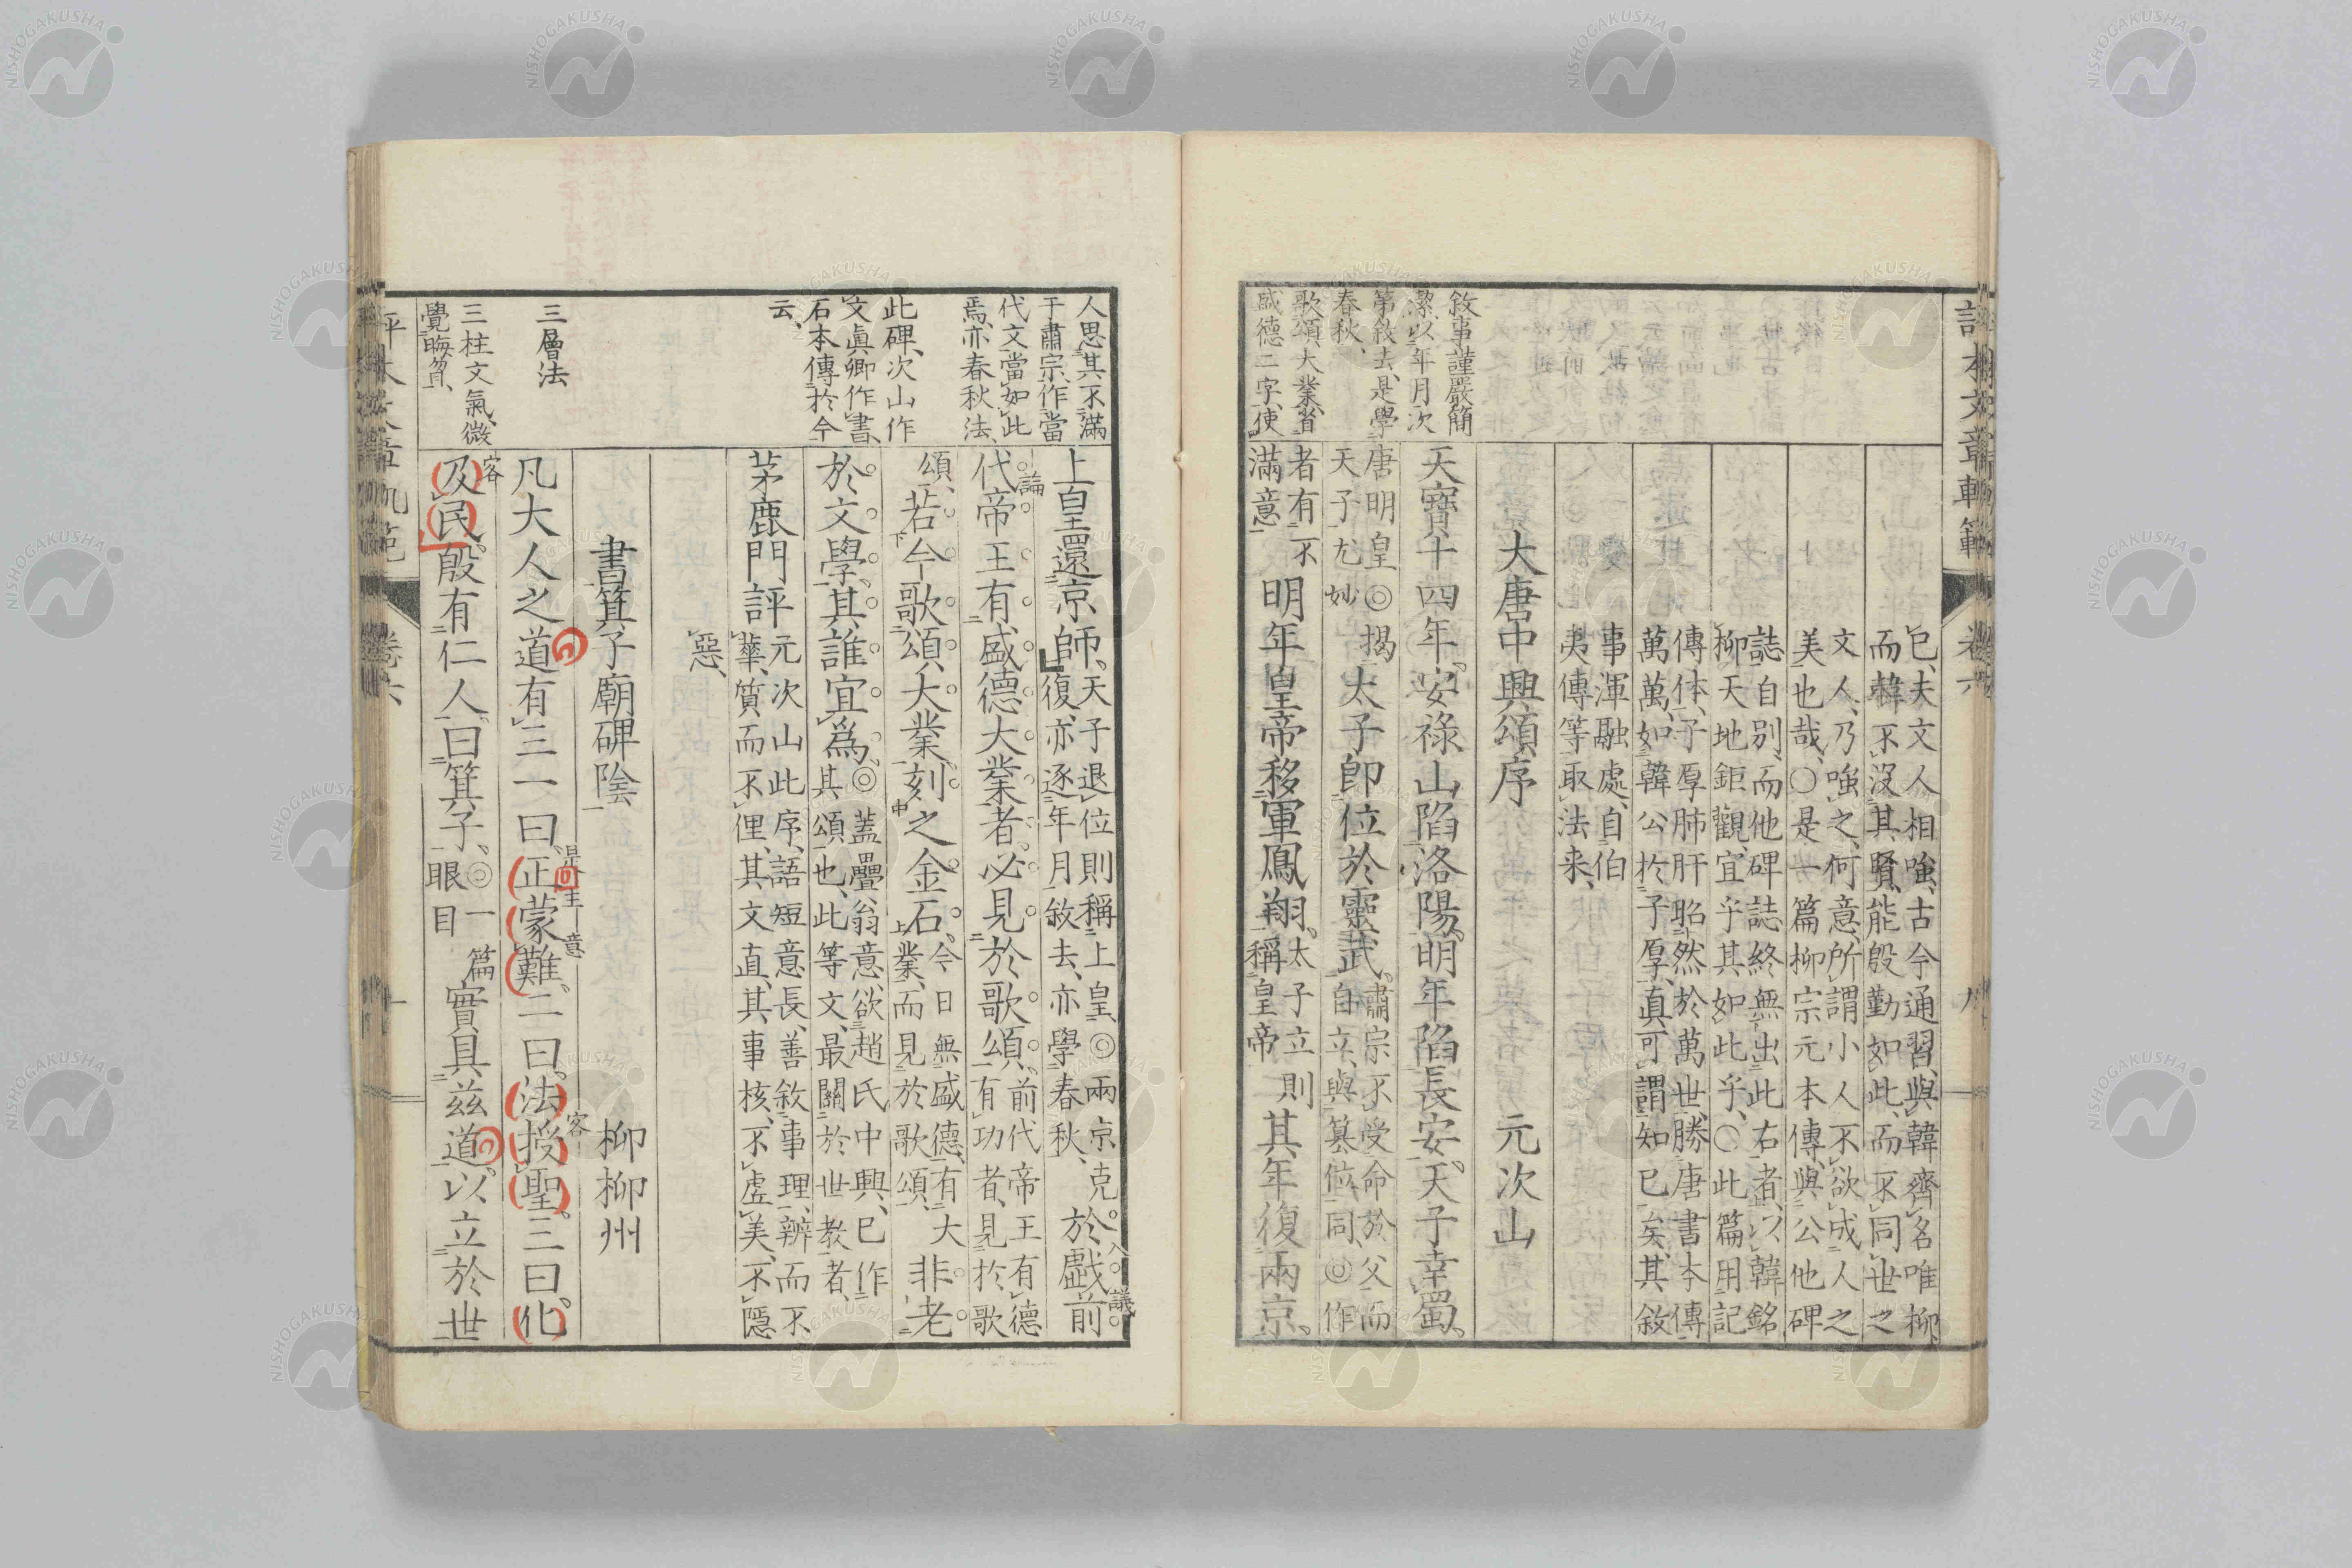 已夫文人相嗤古今通習與韓齊名唯柳
而韓不沒其賢能殷勤如此而不同世之
文人乃嗤之何意所謂小人不欲成人之
美也哉○是一篇柳宗元本傳與公他碑
誌自別而他碑誌終無出此右者以韓銘
柳天地鉅觀宜乎其如此乎○此篇用記
傳体子厚肺肝昭然於萬世勝唐書本傳
萬萬如韓公於子厚真可謂知已矣其敘
事渾融處自伯
夷傳等取法来
大唐中興頌序 元次山
敘事謹嚴簡
潔以年月次
第敘去是學
春秋
天寶十四年安祿山陷洛陽明年陷長安天子幸蜀
唐明皇◎揭
天子尤妙
太子即位於靈武
肅宗不受命於父而
自立與篡位同◎作
歌頌大業者
盛德二字使
者有不
滿意
明年皇帝移軍鳳翔
太子立則
稱皇帝
其年復兩京
人思其不滿
于肅宗作當
代文當如此
焉亦春秋法
上皇還京師
天子退位則稱上皇◎兩京克
復亦逐年月敘去亦學春秋
於戲前
議
論
代帝王有盛德大業者必見於歌頌
前代帝王有德
有功者見於歌
頌
若今歌頌大業刻之金石
今日無盛德有大
業而見於歌頌
非老
此碑次山作
文眞卿作書
石本傳於今
云
於文學其誰宜爲
◎蓋疊翁意欲趙氏中興已作
其頌也此等文最關於世教者
茅鹿門評
元次山此序語短意長善敘事理辨而不
華質而不俚其文直其事核不虛美不隱
惡
書箕子廟碑陰 柳柳州
三層法
凡大人之道有三一曰正蒙難二曰法授聖三曰化
客
三柱文氣微
覺晦貧
客
及民殷有仁人曰箕子
◎一篇
眼目
實具茲道以立於世
卷六